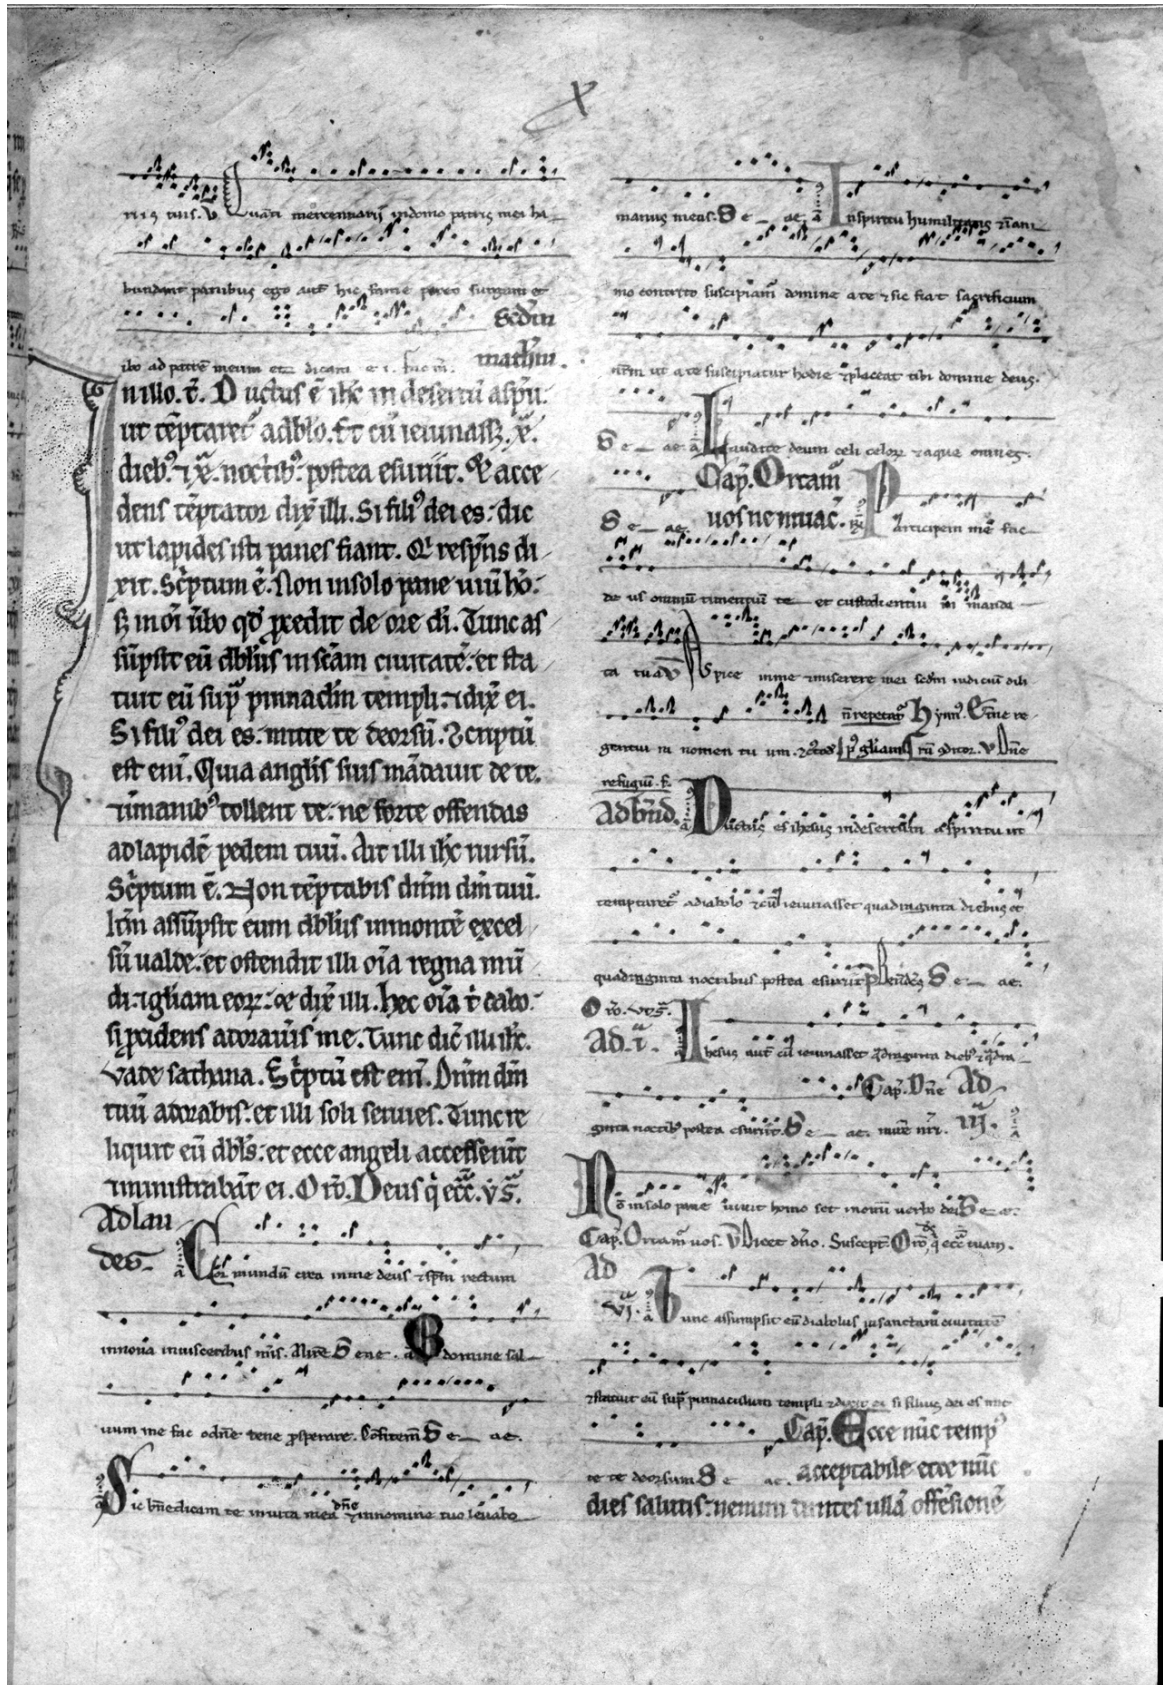 x
riis tuis. V Quanti mercennarij indomo patris mei ha
bundant panibus ego aut hic fame pereo surgam et
Scdm
ibo ad patrē meum et dicam ei. fac m. mathm.
n illo. t̄. Ductus ē ihc in desertū a spū.
ut tēptaret᷑ adiblo. Et cū ieiunass;. xl.
dieb⁹ ⁊ xl. noctib⁹. postea esuriit. Et acce
dens tēptator dix̄ illi. Si fili⁹ dei es. dic
ut lapides isti panes fiant. Qi respn̄s di
xit. Sc̄ptum ē. Non insolo pane uiuit ho.
s; in oī ūbo qd̄ ꝓcedit de ore di. Tunc as
sūpsit eū dbl̄us in sc̄am ciuitatē. et sta
tuit eū supᵃ pinnaclm templi. ⁊ dix̄ ei.
Si fili⁹ dei es. mitte te deorsū. Scriptū
est eni. Quia angl̄is suis mādauit de te.
⁊ in manib⁹ tollent te. ne forte offendas
ad lapidē pedem tuū. Ait illi ihc rursū.
Sc̄ptum ē. Non tēptabis dnm dm tuū.
Itm assūpsit eum dbl̄us in montē excel
sū ualde. et ostendit illi oīa regna mū
di. ⁊ gl̄iam eoꝝ. ⁊ dix̄ illi. hec oīa t̄ dabo.
si ꝓcidens adorauis me. Tunc dic̄ illi ihc.
Vade sathana. Sc̄ptū est eni. Dnm dm
tuū adorabis. et illi soli seruies. Tunc re
liquit eū dbl̄s. et ecce angeli accesserūt
⁊ ministrabāt ei. Or̄o. Deus q̄ ecc̄. v̄s̄.
Ad lau
des. a Cor mundū crea in me deus ⁊ spm rectum
innoua in uisceribus mīs. Mirē Seue. a O domine sal
uum me fac o dn̄e bene ꝓsperare. Cōfitem Se ae.
a Sic bn̄edicam te in uita mea dn̄e ⁊ in nomine tuo leuabo
manus meas. Se ae. a In spiritu humilitatis ⁊ in ani
mo contrito suscipiam᷑ domine a te ⁊ sic fiat sacrificium
nr̄m ut a te suscipiatur hodie ⁊ placeat tibi domine deus.
Se ae. a Laudate deum celi celoꝝ ⁊ aque omnes.
Cap. Ortam᷑
Se ae. uos ne in uac̄. Participem me fac
de us omniū timentiū te et custodientiū manda
ta tua V Aspice in me ⁊ miserere mei scdm iudiciū dili
n̄ repetit᷑ Hymn⁹. Sūme re
gentiū nomen tu um. p⁹ gl̄iam V Dn̄e
refugiū. f.
Ad bn̄d. a Ductus es ihesus in desertum a spiritu ut
temptaret᷑ a diabolo ⁊ cū ieiunasset quadraginta diebus et
quadraginta noctibus postea esuriit p̄ Bened̄c⁹ Se ae.
Or̄o. Ad .i. Ihesus aut cū ieiunasset qᵈraginta dieb⁹ ⁊ qᵈra
Cap. Dn̄e Ad
ginta noctib⁹ postea esuriit. Se ae. miserē nr̄i. iij.
a
Nō in solo pane uiuit homo set in omni uerbo dei Se ae.
Cap. Ortam᷑ uos. V Dicet dn̄o. Suscept. Or̄o ds̄ q̄ ecc̄ tuam.
Ad
vj. a Tunc assumpsit eū diabolus in sanctam ciuitatē
⁊ statuit eū supᵃ pinnaculum templi ⁊ dixit ei si filius dei es mit
Cap. Ecce nūc temp⁹
te te deorsum Se ae. acceptabile ecce nūc
dies salutis. nemini dantes ullā offēsionē